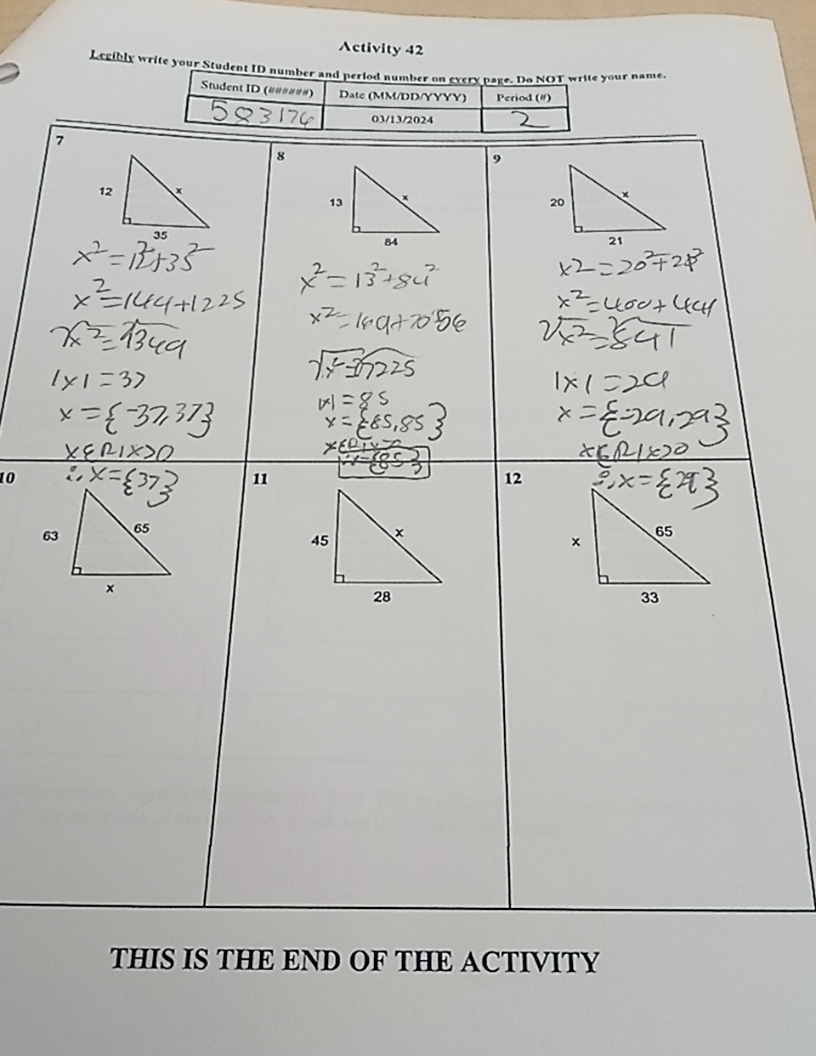 Activity 42
Legibly write your Student ID number and period number on every page. Do NOT write your name.
Student ID (######) Date (MM/DD/YYYY) Period (#)
583176 03/13/2024 2
7
12
x
35
x²=12²+35²
x²=144+1225
√x²=√1349
|x|=37
x={-37,37}
x∈R|x>0
∴x={37}
8
13
x
84
x²=13²+84²
x²=169+7056
√x²=√7225
|x|=85
x={85,85}
x∈R|x>0
∴x={85}
9
20
x
21
x2=20²+21²
x²=400+441
√x²=√841
|x|=29
x={-29,29}
x∈R|x>0
∴x={29}
10
63
65
x
11
45
x
28
12
x
65
33
THIS IS THE END OF THE ACTIVITY